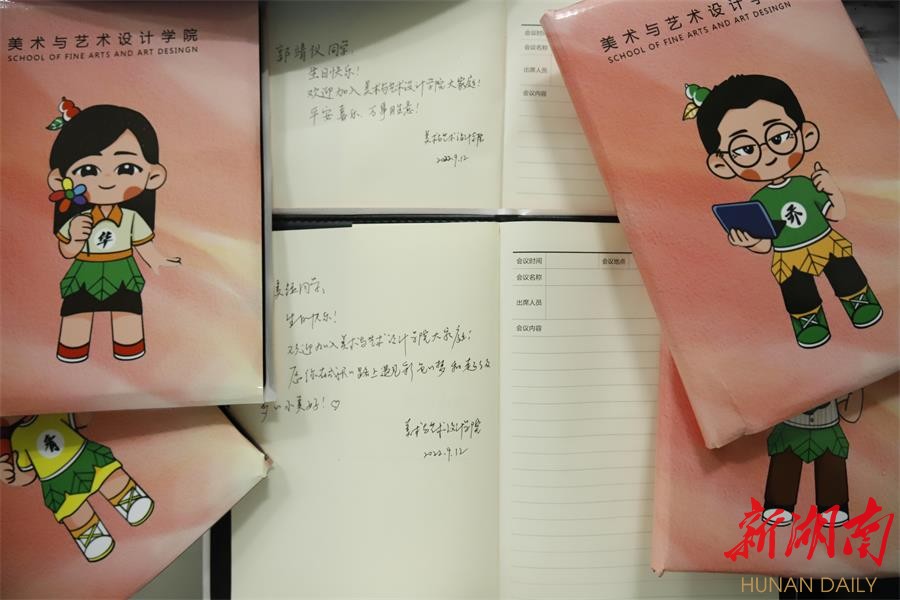 美术与艺术设计学院
SCHOOL OF FINE ARTS AND ART DESINGN
华
郭靖仪同学：
生日快乐！
欢迎加入美术与艺术设计学院大家庭！
平安喜乐、万事胜意！
美术与艺术设计学院
2022.9.12
会议时间
会议名称
出席人员
会议内容
美术与艺术设计学院
SCHOOL OF FINE ARTS AND ART DESINGN
乔
同学：
生日快乐！
欢迎加入美术与艺术设计学院大家庭！
愿你在成长的路上遇见彩色的梦和
小美好！♡
美术与艺术设计学院
2022.9.12
会议时间 会议地点
会议名称
出席人员
会议内容
新湖南
HUNAN DAILY